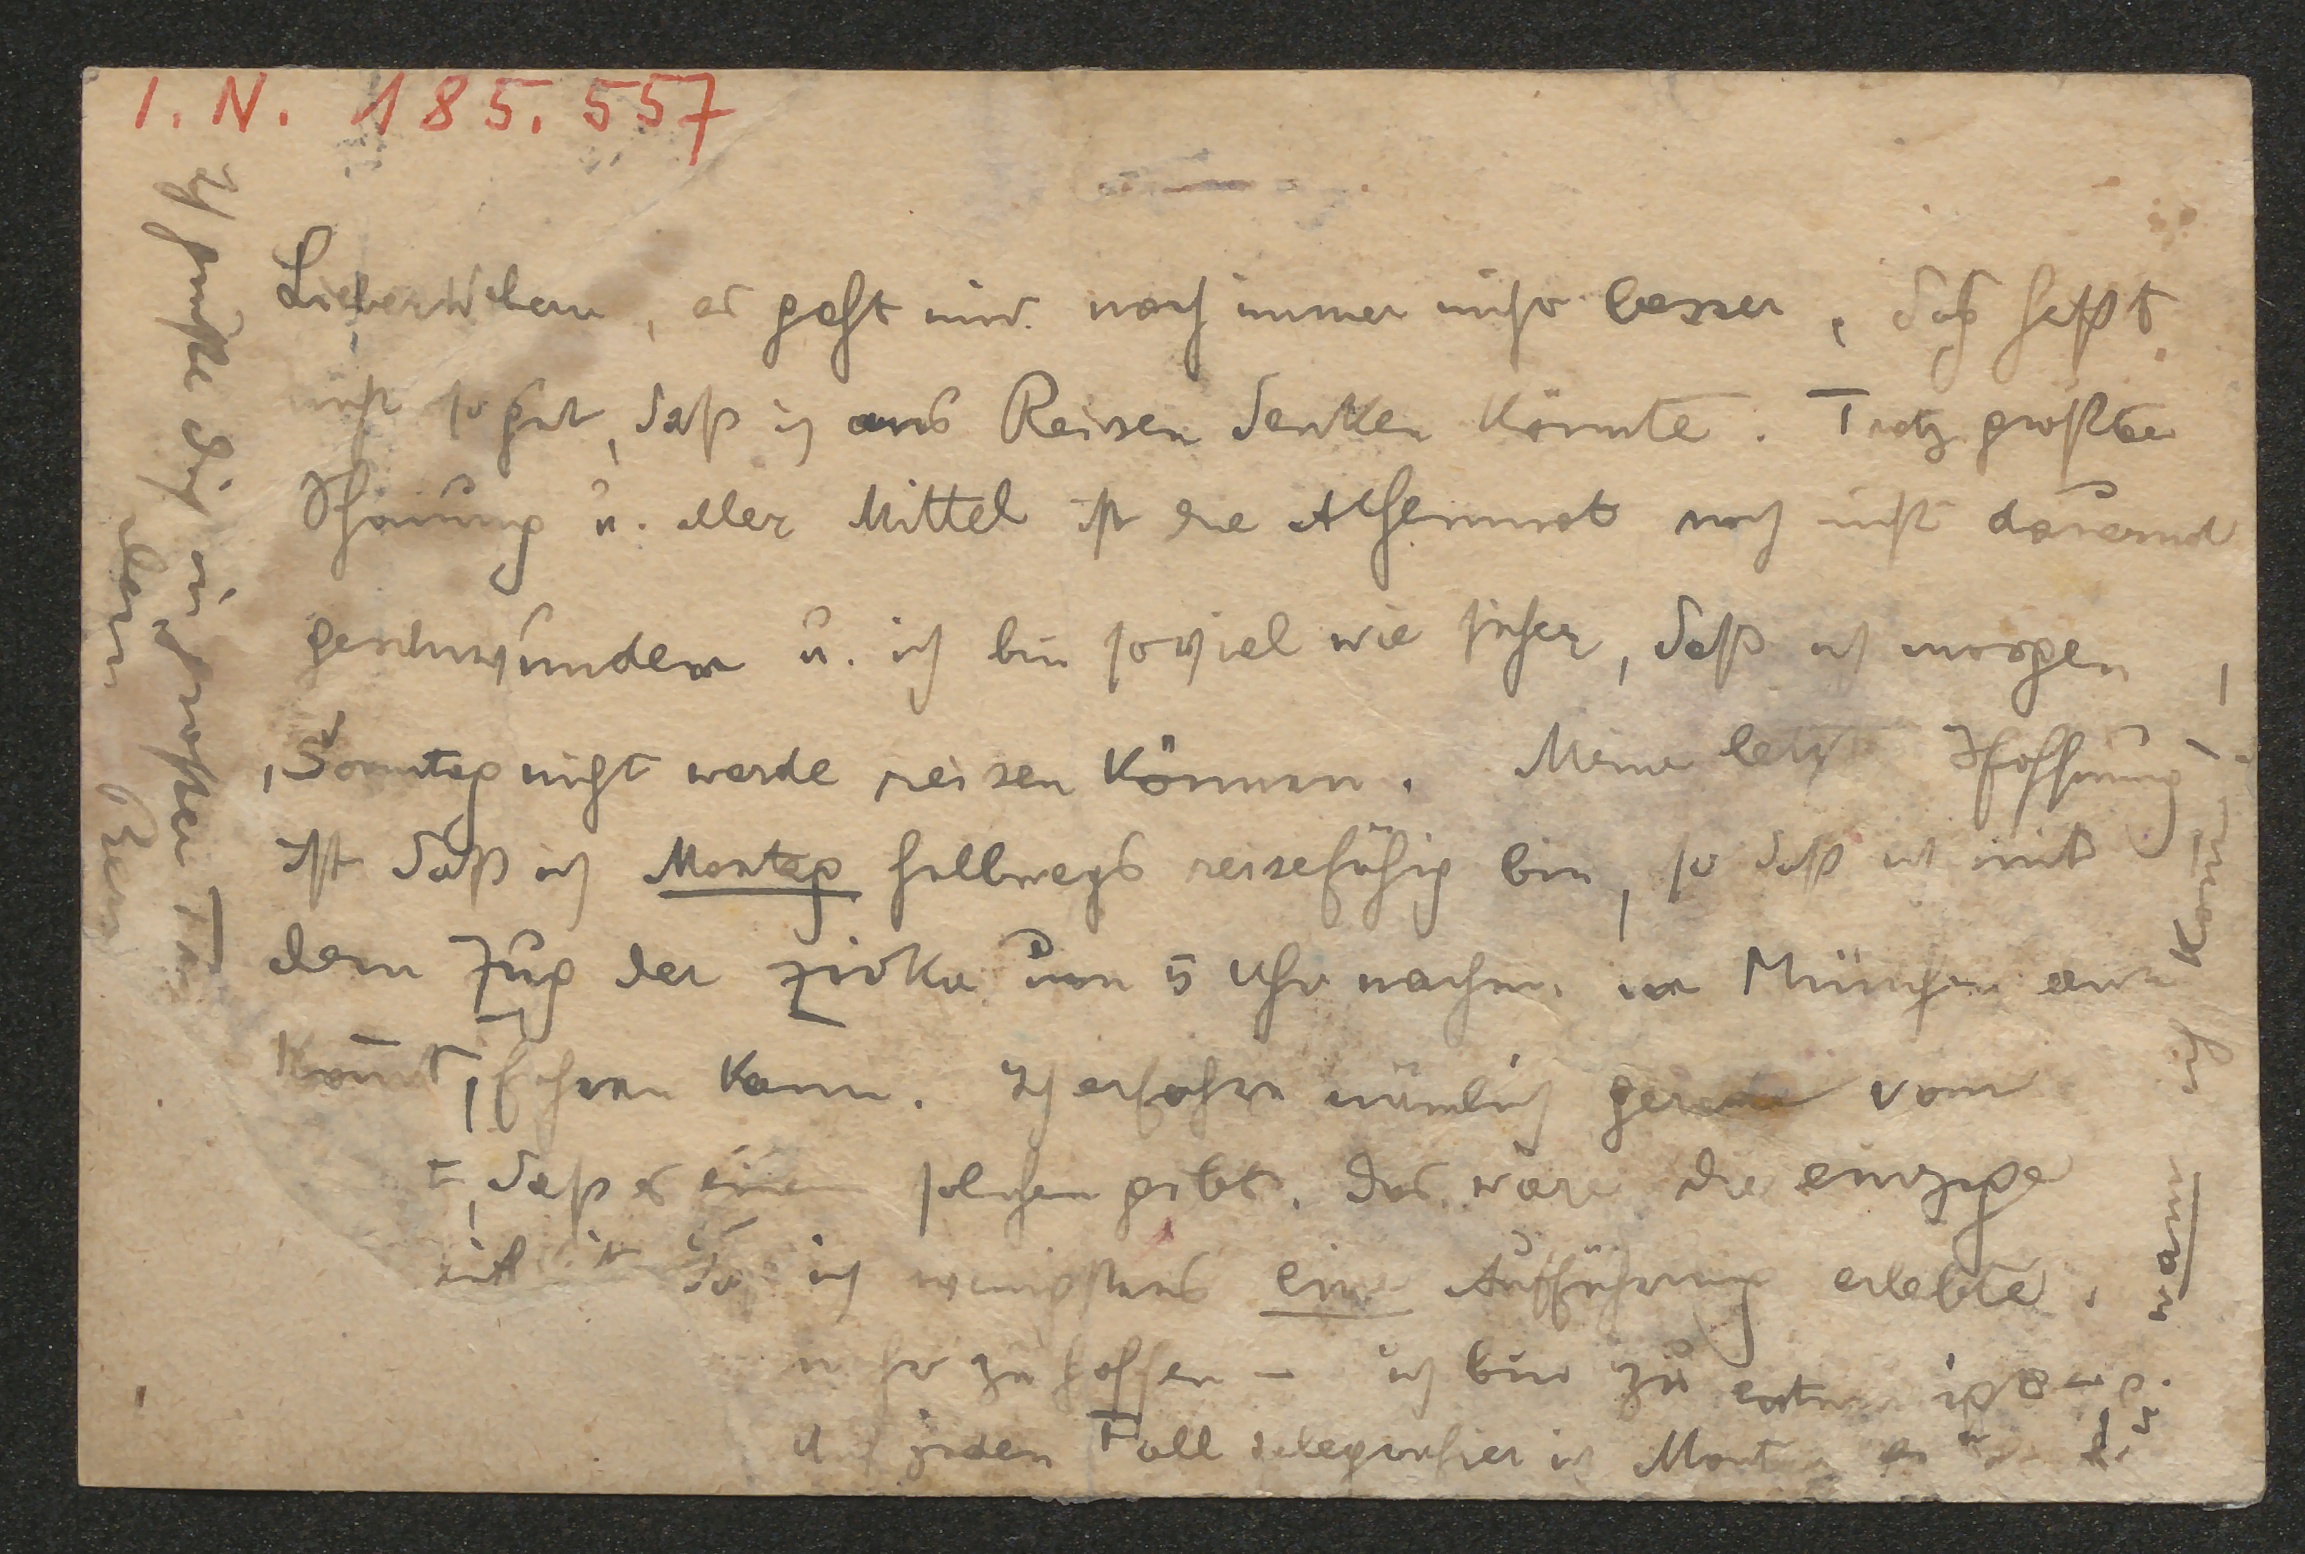 I. N. 185.557
Lieber Webern, es geht mir noch immer nicht besser, das heißt
nicht so gut, daß ich ans Reisen denken könnte. Trotz größter
Schonung u. aller Mittel ist die Athemnot noch nicht dauernd
geschwunden u. ich bin soviel wie sicher, daß ich morgen
, Sonntag nicht werde reisen können. Meine letzte Hoffnung
ist daß ich Montag halbwegs reisefähig bin, so daß ich mit
dem Zug der zirka um 5 Uhr nachm. in München an-
kom̅t, fahren kann. Ich erfahre nämlich gerade vom
, daß es einen solchen gibt. Das wäre die einzige
da ich wenigstens eine Aufführung erlebte.
zu hoffen – ich bin zu
jeden Fall telegrafier ich
wann ich kom̅e.
Ich grüße Dich in großer
Dein Berg